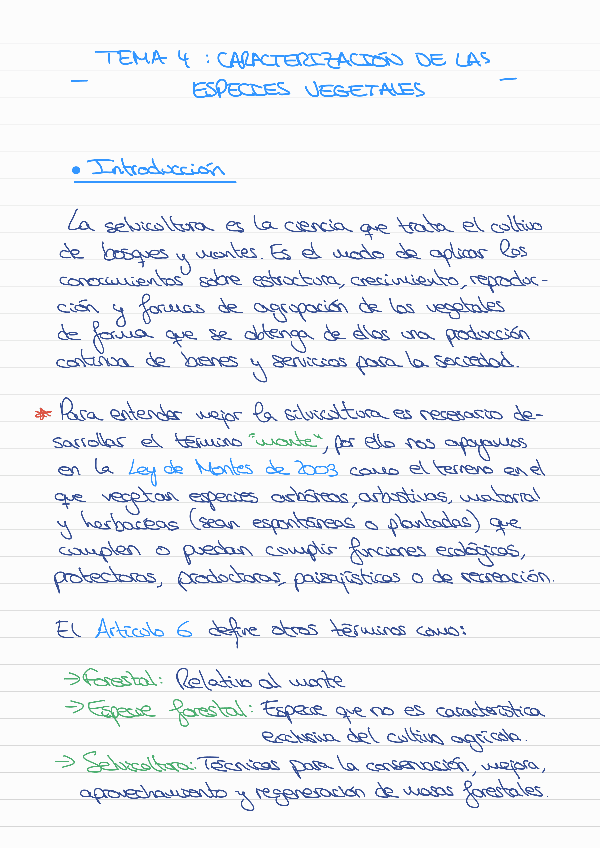 TEMA 4 : CARACTERIZACIÓN DE LAS
- ESPECIES VEGETALES -
• Introducción
La selvicultura es la ciencia que trata el cultivo
de bosques y montes. Es el modo de aplicar los
conocimientos sobre estructura, crecimiento, reproduc-
ción y formas de agrupación de los vegetales
de forma que se obtenga de ellos una producción
continua de bienes y servicios para la sociedad.
* Para entender mejor la silvicultura es necesario de-
sarrollar el término "monte", por ello nos apoyamos
en la Ley de Montes de 2003 como el terreno en el
que vegetan especies arbóreas, arbustivas, matorral
y herbáceas (sean espontáneas o plantadas) que
cumplen o puedan cumplir funciones ecológicas,
protectoras, productoras, paisajísticas o de recreación.
El Artículo 6 define otros términos como:
→ Forestal: Relativo al monte
→ Especie forestal: Especie que no es característica
exclusiva del cultivo agrícola.
→ Selvicultura: Técnicas para la conservación, mejora,
aprovechamiento y regeneración de masas forestales.